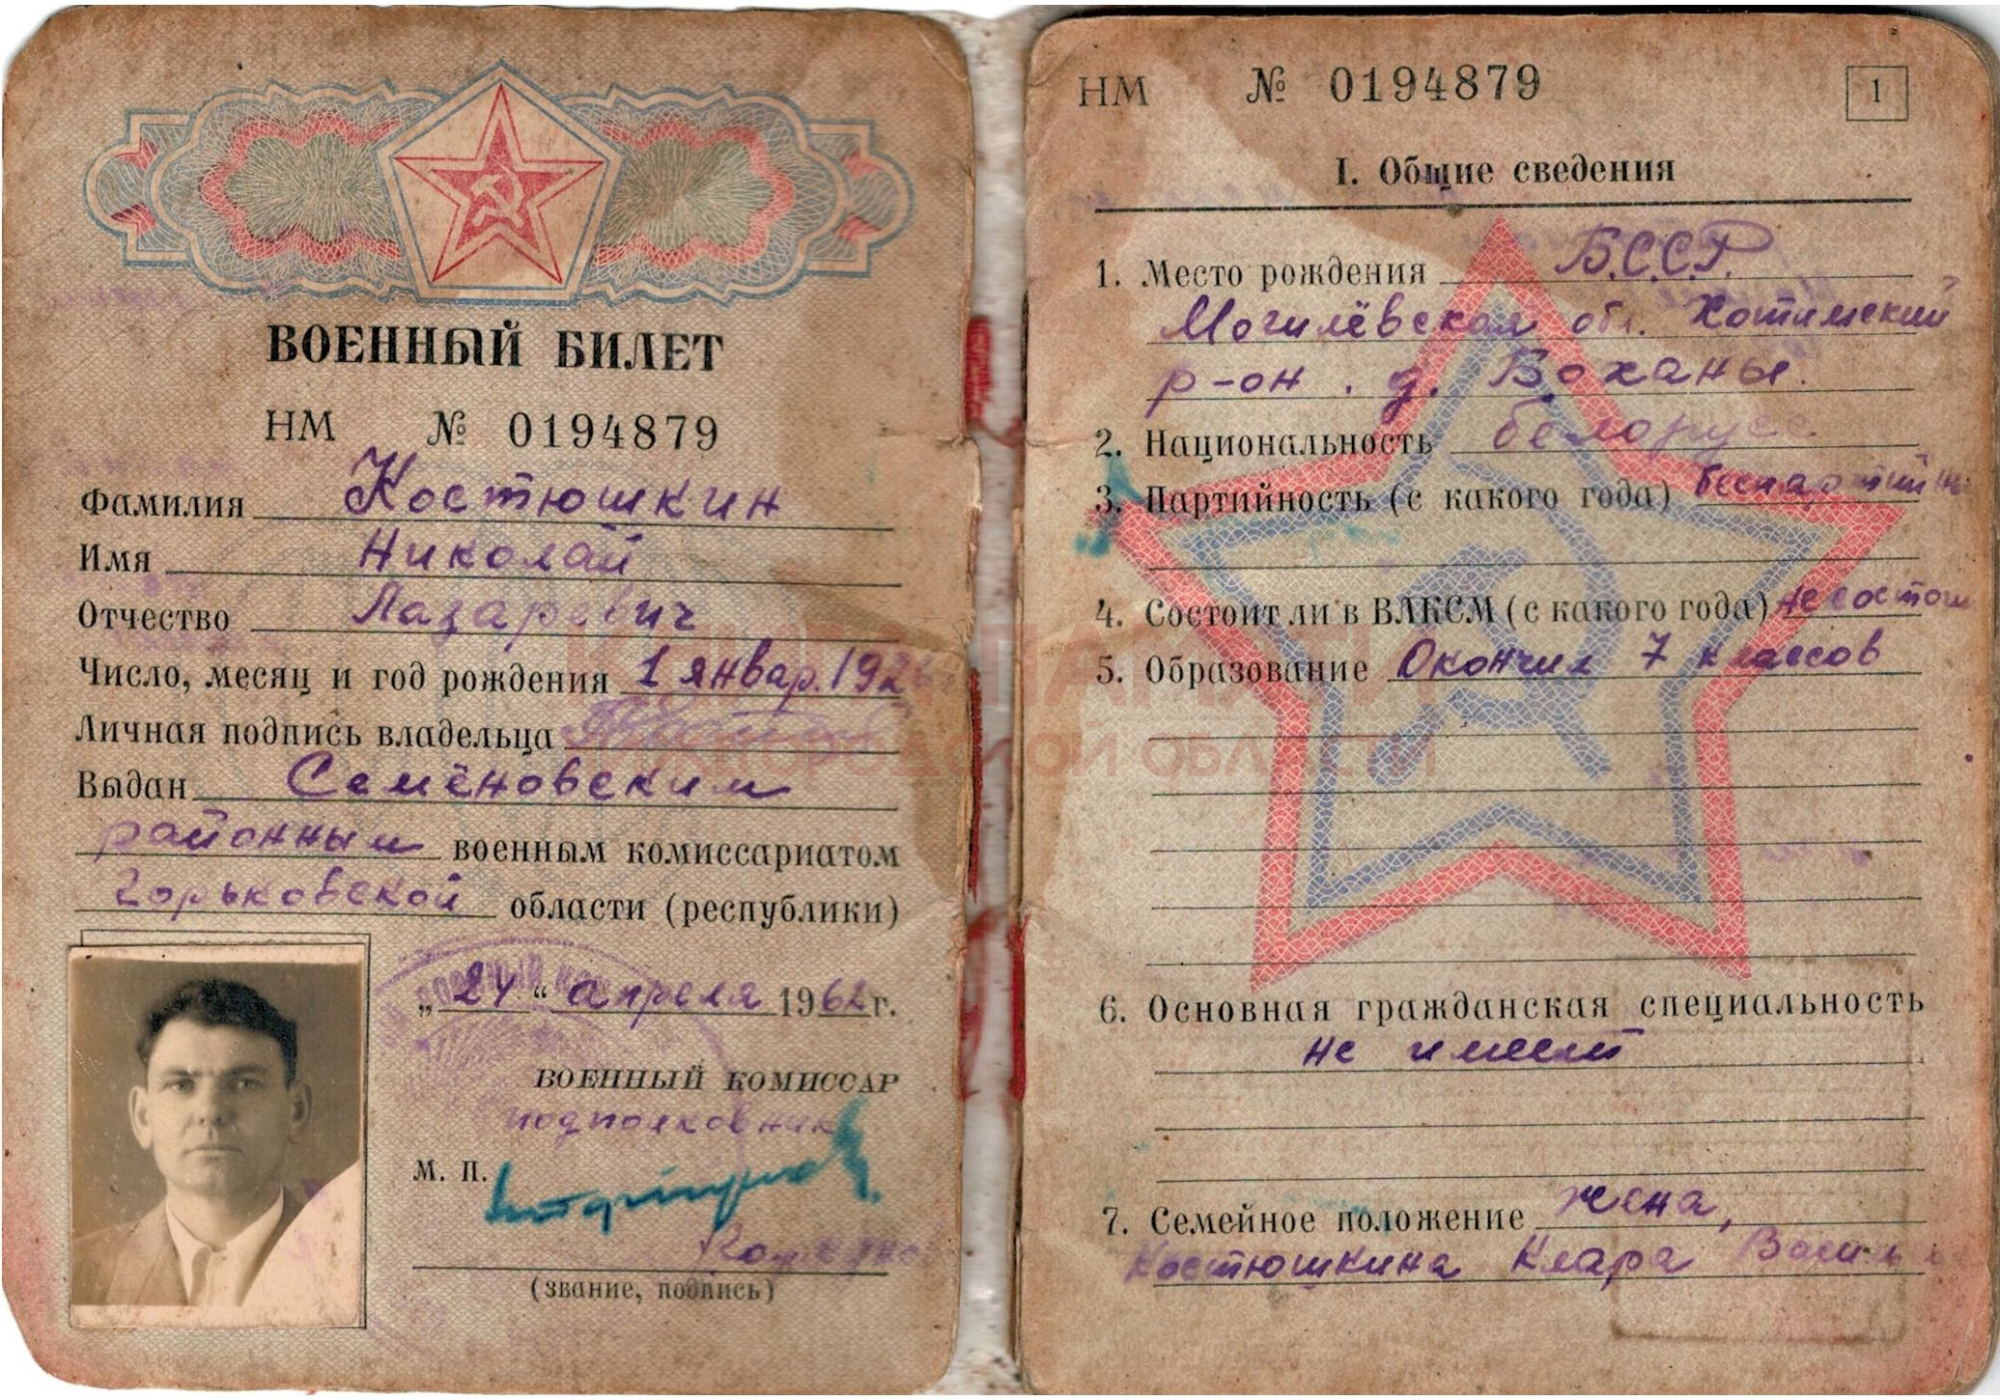 ВОЕННЫЙ БИЛЕТ
НМ № 0194879
Фамилия Костюшкин
Имя Николай
Отчество Лазаревич
Число, месяц и год рождения 1 январ. 192
Личная подпись владельца
Выдан Семёновским
районным военным комиссариатом
Горьковской области (республики)
„24“ апреля 1962 г.
ВОЕННЫЙ КОМИССАР
подполковник
М. П.
(звание, подпись)
НМ № 0194879
1
I. Общие сведения
1. Место рождения Б.С.С.Р.
Могилёвская обл. Хотимский
р-он. д. Воханы.
2. Национальность белорусс.
3. Партийность (с какого года) беспартийн
4. Состоит ли в ВЛКСМ (с какого года) не состоит
5. Образование Окончил 7 классов
6. Основная гражданская специальность
не имеет
7. Семейное положение жена,
Костюшкина Клара
КНИГА ПАМЯТИ
НИЖЕГОРОДСКОЙ ОБЛАСТИ